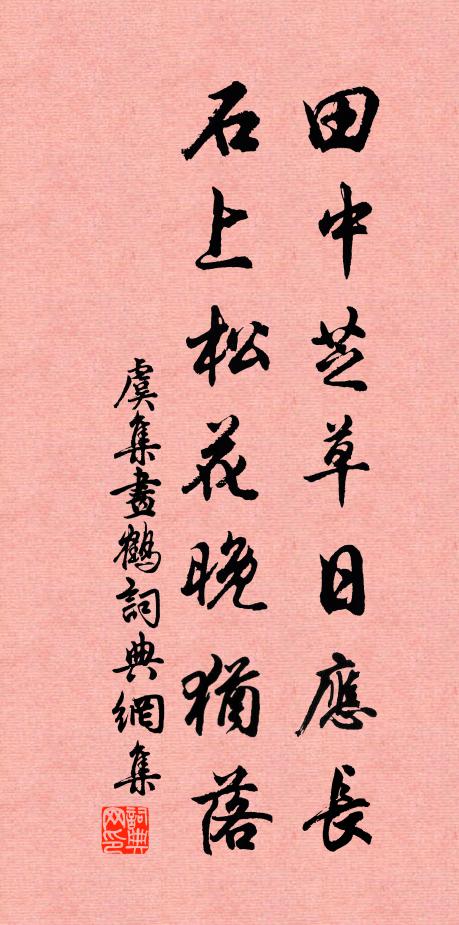 田中芝草日應長
石上松花晚猶落
虞集畫鶴詞典網集
詞典
网印